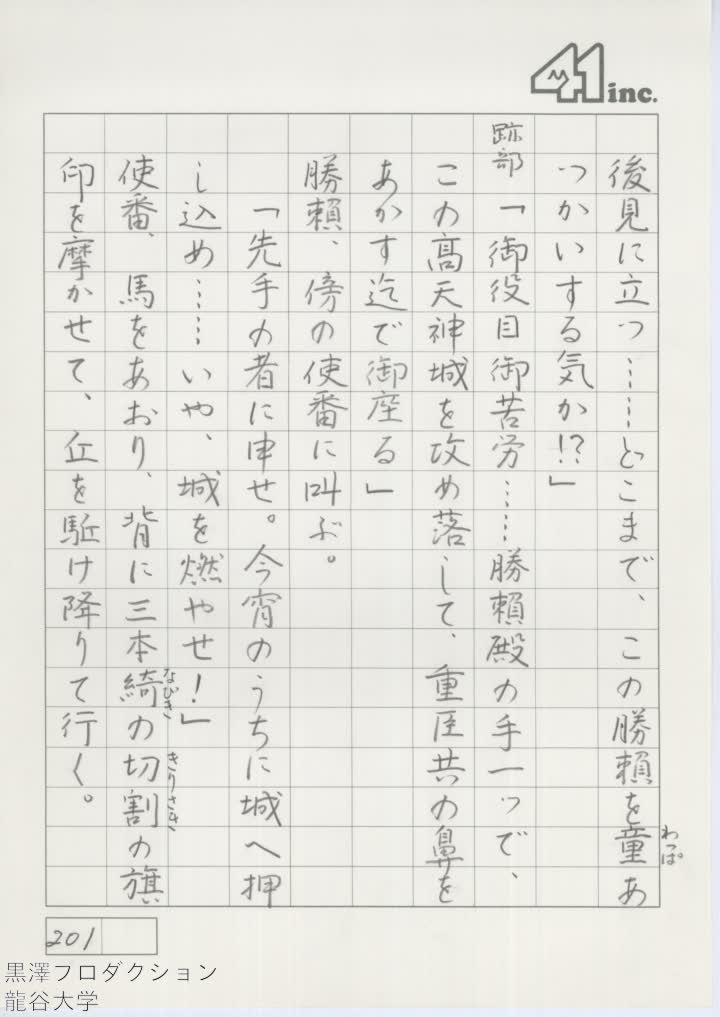 41 inc.
後見に立つ……どこまで、この勝頼を童あ
わっぱ
つかいする気か!?」
跡部「御役目御苦労……勝頼殿の手一ツで、
この高天神城を攻め落して、重臣共の鼻を
あかす迄で御座る」
勝頼、傍の使番に叫ぶ。
「先手の者に申せ。今宵のうちに城へ押
し込め……いや、城を燃やせ!」
使番、馬をあおり、背に三本綺の切割の旗
なびき
きりさき
印を摩かせて、丘を駈け降りて行く。
201
黒澤プロダクション
龍谷大学